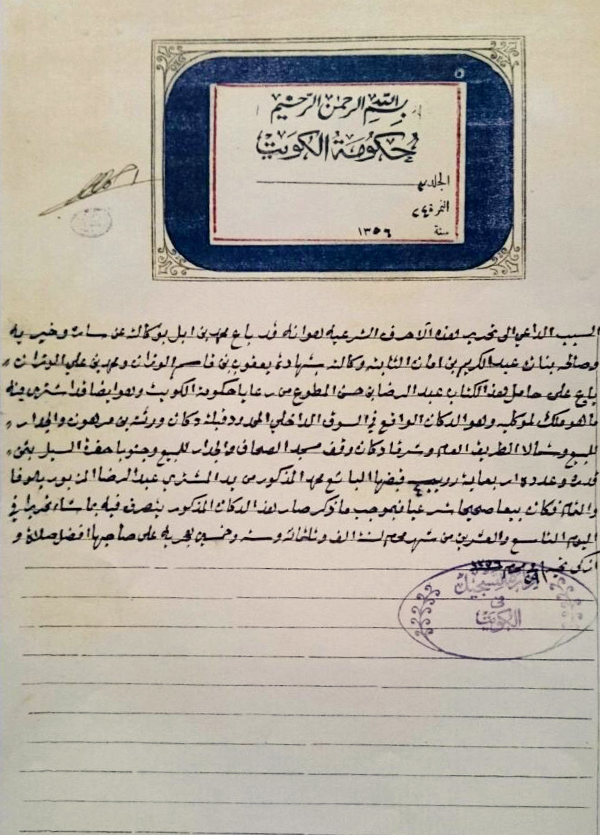 بسم الله الرحمن الرحيم
حكومة الكويت
الجلد
النمرة ٢٤
سنة ١٣٥٦
السبب الداعي الى تحرير لهذه الأحرف الشرعية لهو انه قد باع محمد بن ابل بوكالته عن ساره وخيريه
وصالحه بنات عبد الكريم بن امان الثابته وكالته بشهادة يعقوب بن قاسم الوزان ومحمد بن علي الوزان
باع على حامل لهذا الكتاب عبد الرضا بن حسن المطوع من رعايا حكومة الكويت ولهو ايضا قد اشترى منه
ما لهو ملك لموكليه ولهو الدكان الواقع في السوق الداخلي المحدود قبلة دكان ورثة بن مرهون والجدار
للمبيع وشمالا الطريق العام وشرقا دكان وقف مسجد الصحاف والجدار للمبيع وجنوبا حفرة السبل بثمن
قدره وعدده اربعماية روبيه قبضها البائع محمد المذكور من يد المشتري عبد الرضا المزبور بالوفا
والتمام فكان بيعا صحيحا شرعيا فبموجب ما ذكر صار لهذا الدكان المذكور يتصرف فيه بما شاء تحريرا في
اليوم التاسع والعشرين من شهر محرم لسنة الف وثلثمائة وسته وخمسين هجرية على صاحبها افضل صلاة و
ازكى تحية محرم ١٣٥٦
التسجيل
في
الكويت